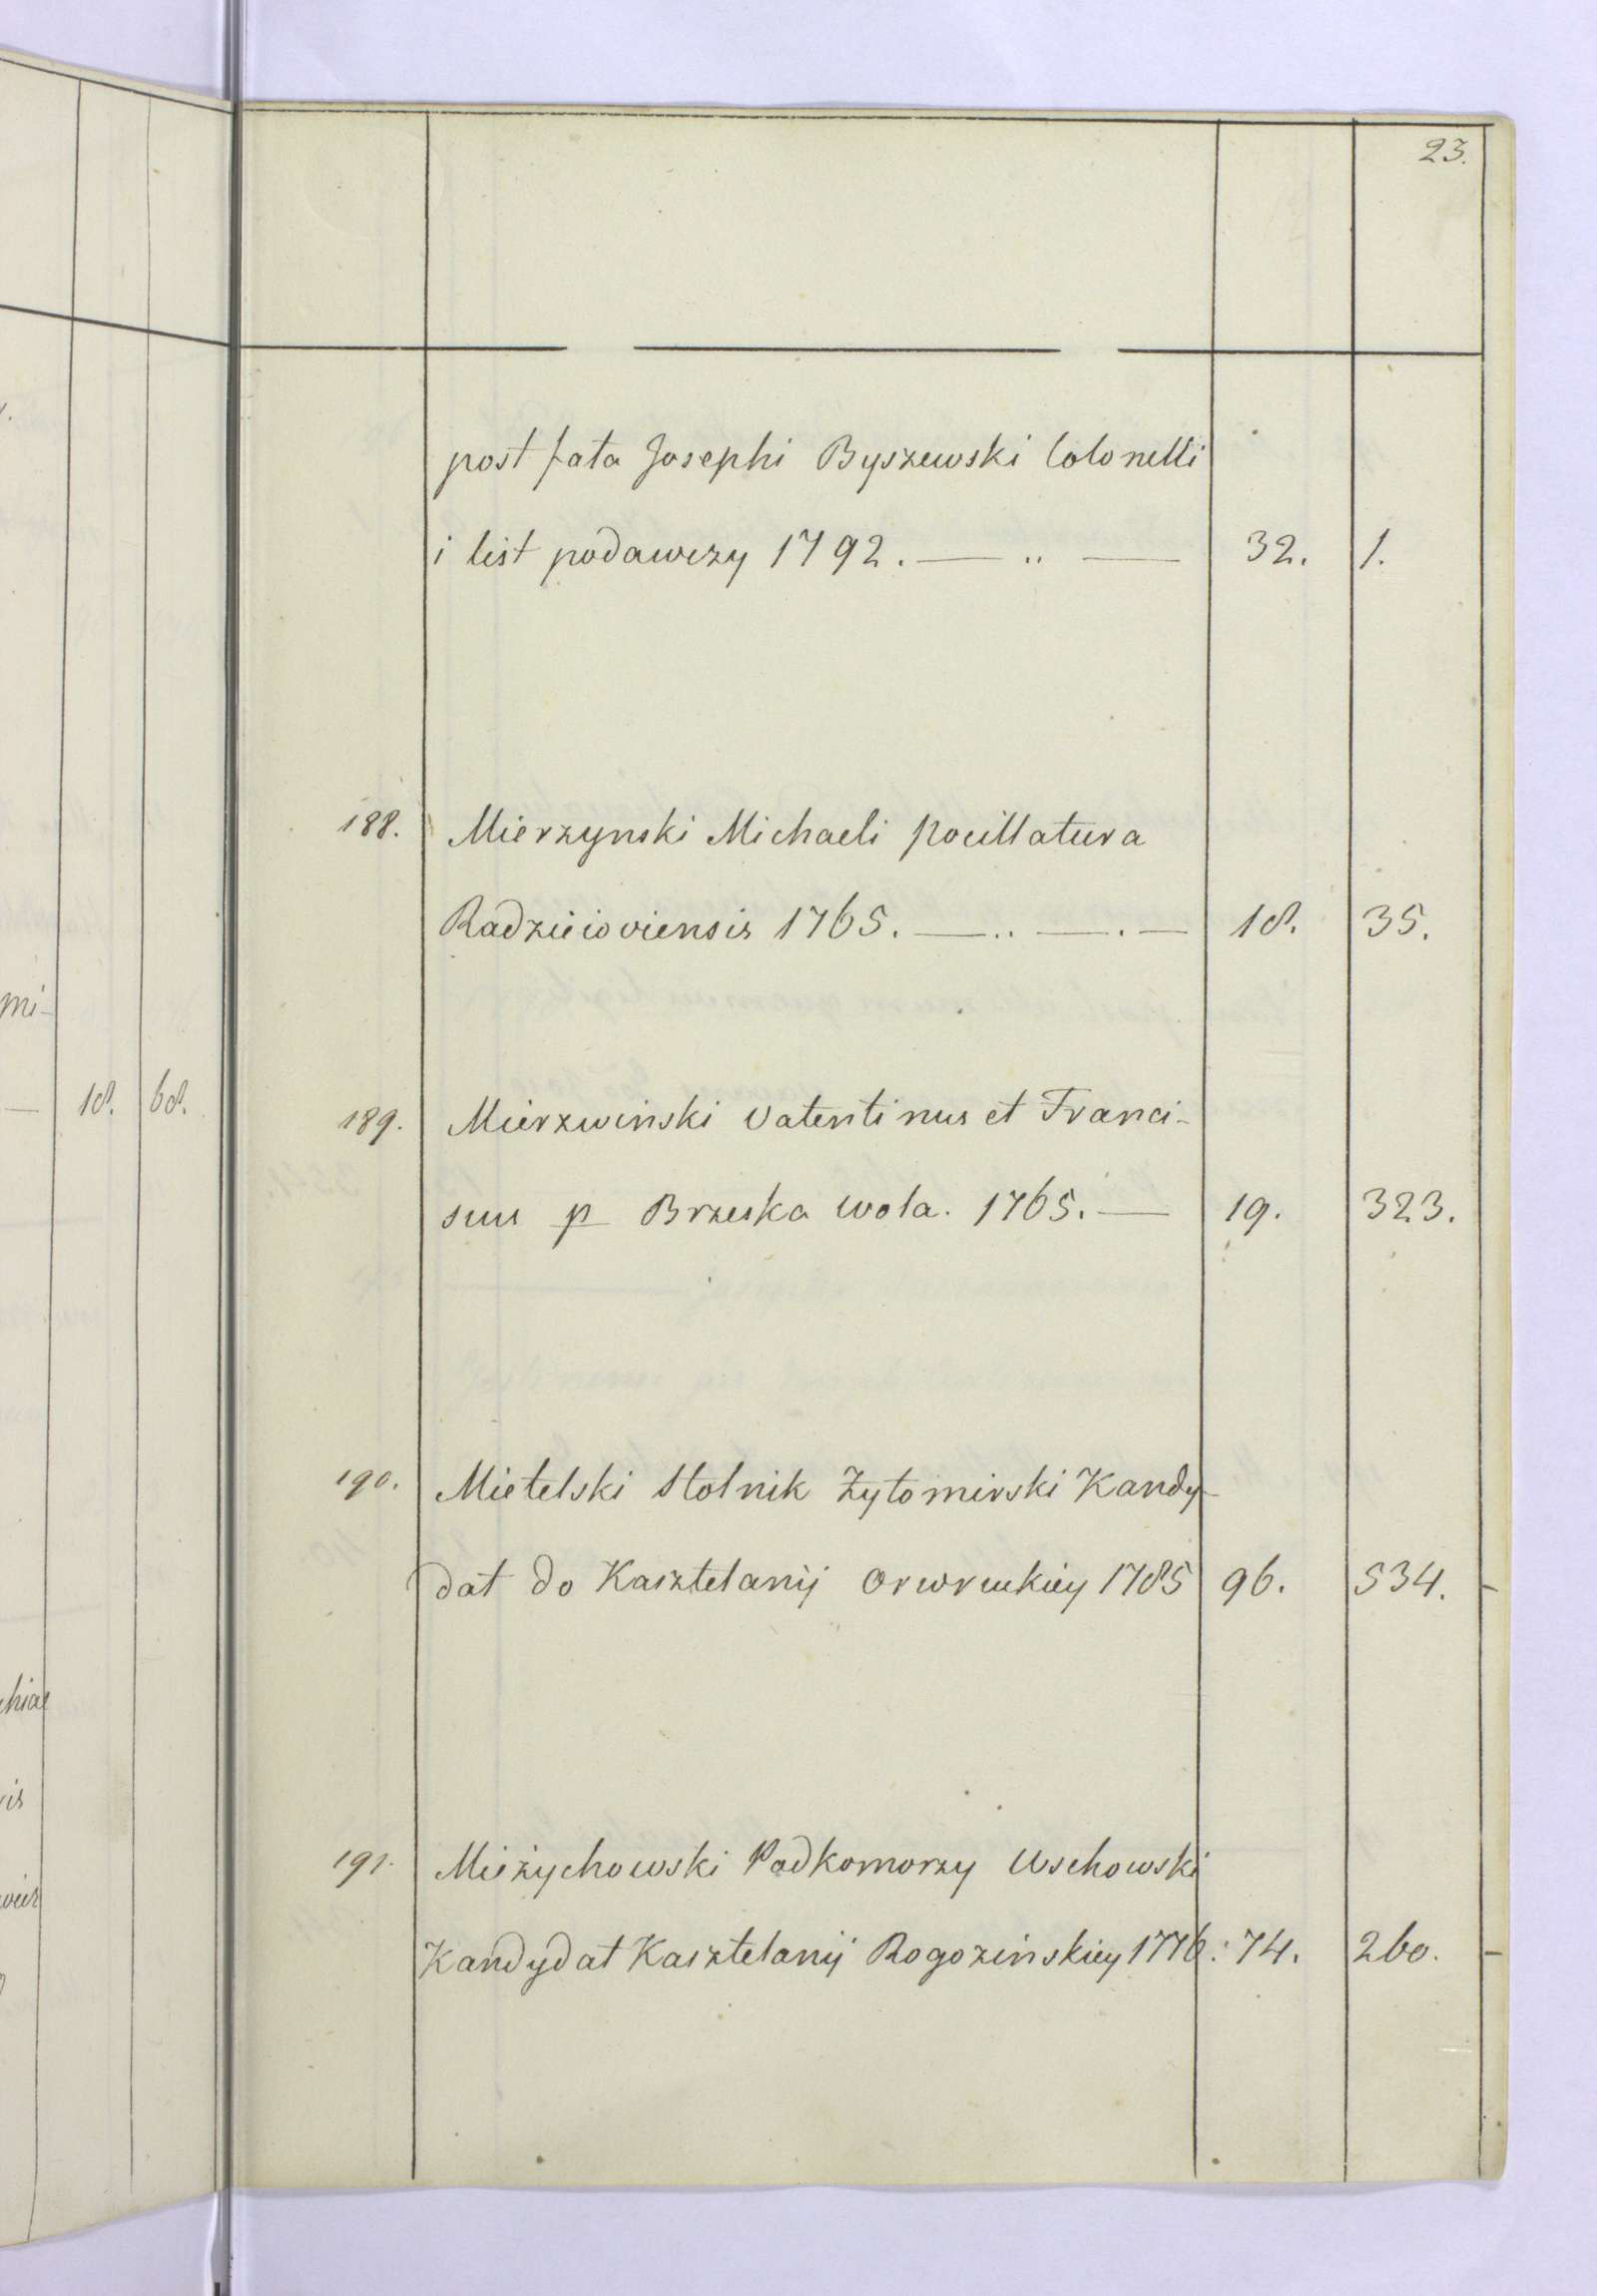 23.
post fata Josephi Byszewski Colonelli
i list podawczy 1792. — .. — 32. 1.
188. Mierzynski Michaeli Pocillatura
Radzieioviensis 1765. — .. — . — 18. 35.
mi-
— 18. 68.
189. Mierzwinski Valentinus et Franci-
scus p Brzeska Wola. 1765. — 19. 323.
190. Mielelski Stolnik Żytomirski Kandy-
dat do Kasztelanij Orwruckiey 1785 96. 534.
chiae
191. Mieżychowski Podkomorzy Wschowski
Kandydat Kasztelanij Rogozinskiey 1776. 74. 260.